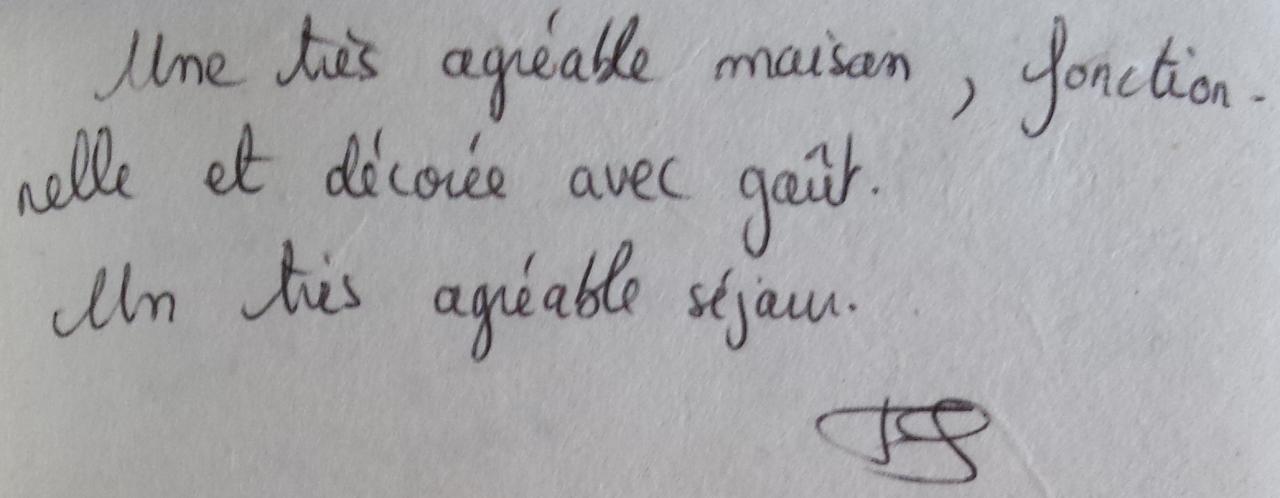 Une très agréable maison, fonction-
nelle et décorée avec goût.
Un très agréable séjour.